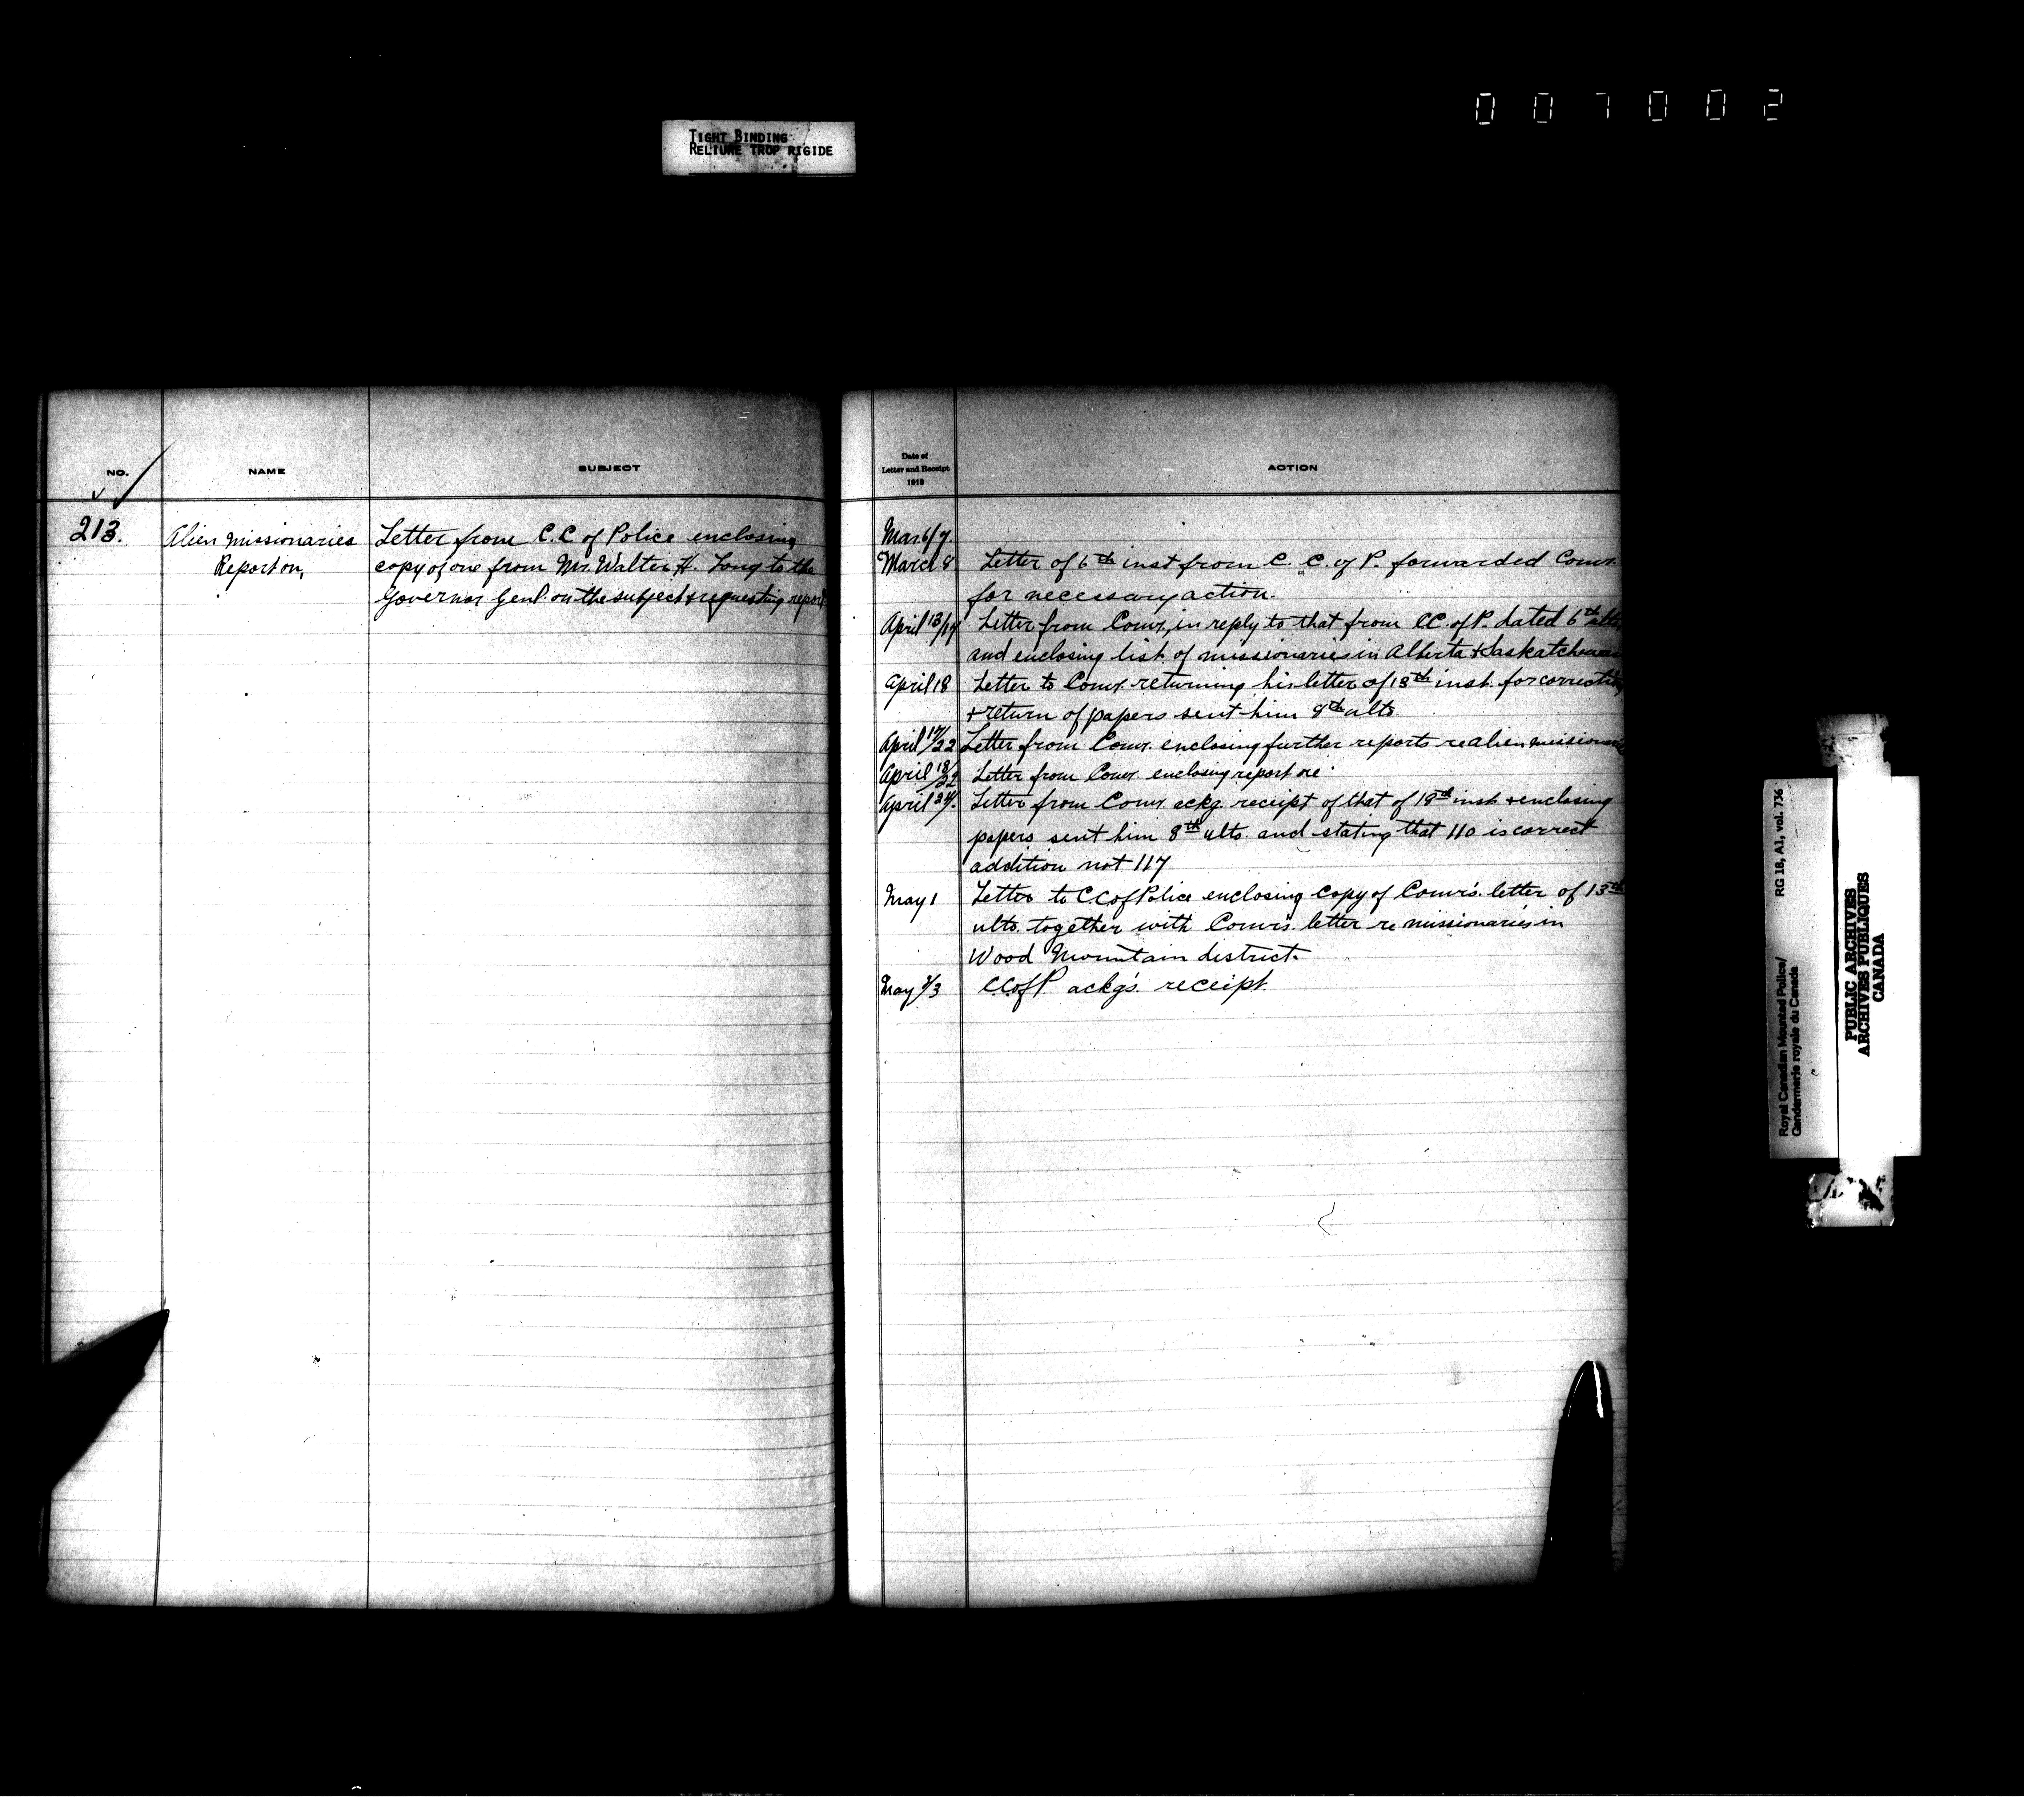 007002
TIGHT BINDING
RELIURE TROP RIGIDE
NO.
NAME
SUBJECT
213.
Alien Missionaries
Report on,
Letter from C.C of Police enclosing
copy of one from Mr. Walter H. Long to the
Governor Genl. on the subject & requesting report
Date of
Letter and Receipt
1918
ACTION
Mar. 6/7.
March 8 Letter of 6th inst from C. C. of P. forwarded Comr.
for necessary action.
April 13/17 Letter from Comr., in reply to that from CC. of P. dated 6th ulto,
and enclosing list of missionaries in Alberta & Saskatchewan
April 18 Letter to Comr. returning his letter of 13th inst. for correction
& return of papers sent him 8th ulto.
April 17/22 Letter from Comr. enclosing further reports re alien
April 18/22 Letter from Comr. enclosing report re.
April 24. Letter from Comr. ackg. receipt of that of 18th inst & enclosing
papers sent him 8th ulto. and stating that 110 is correct
addition not 117
May 1 Letter to C C of Police enclosing copy of Comr's. letter of 13th
ulto. together with Comr's. letter re missionaries in
Wood Mountain district.
May 2/3 C.C. of P. ackg's. receipt.
Royal Canadian Mounted Police/
Gendarmerie royale du Canada
RG 18, A1, vol. 736
PUBLIC ARCHIVES
ARCHIVES PUBLIQUES
CANADA